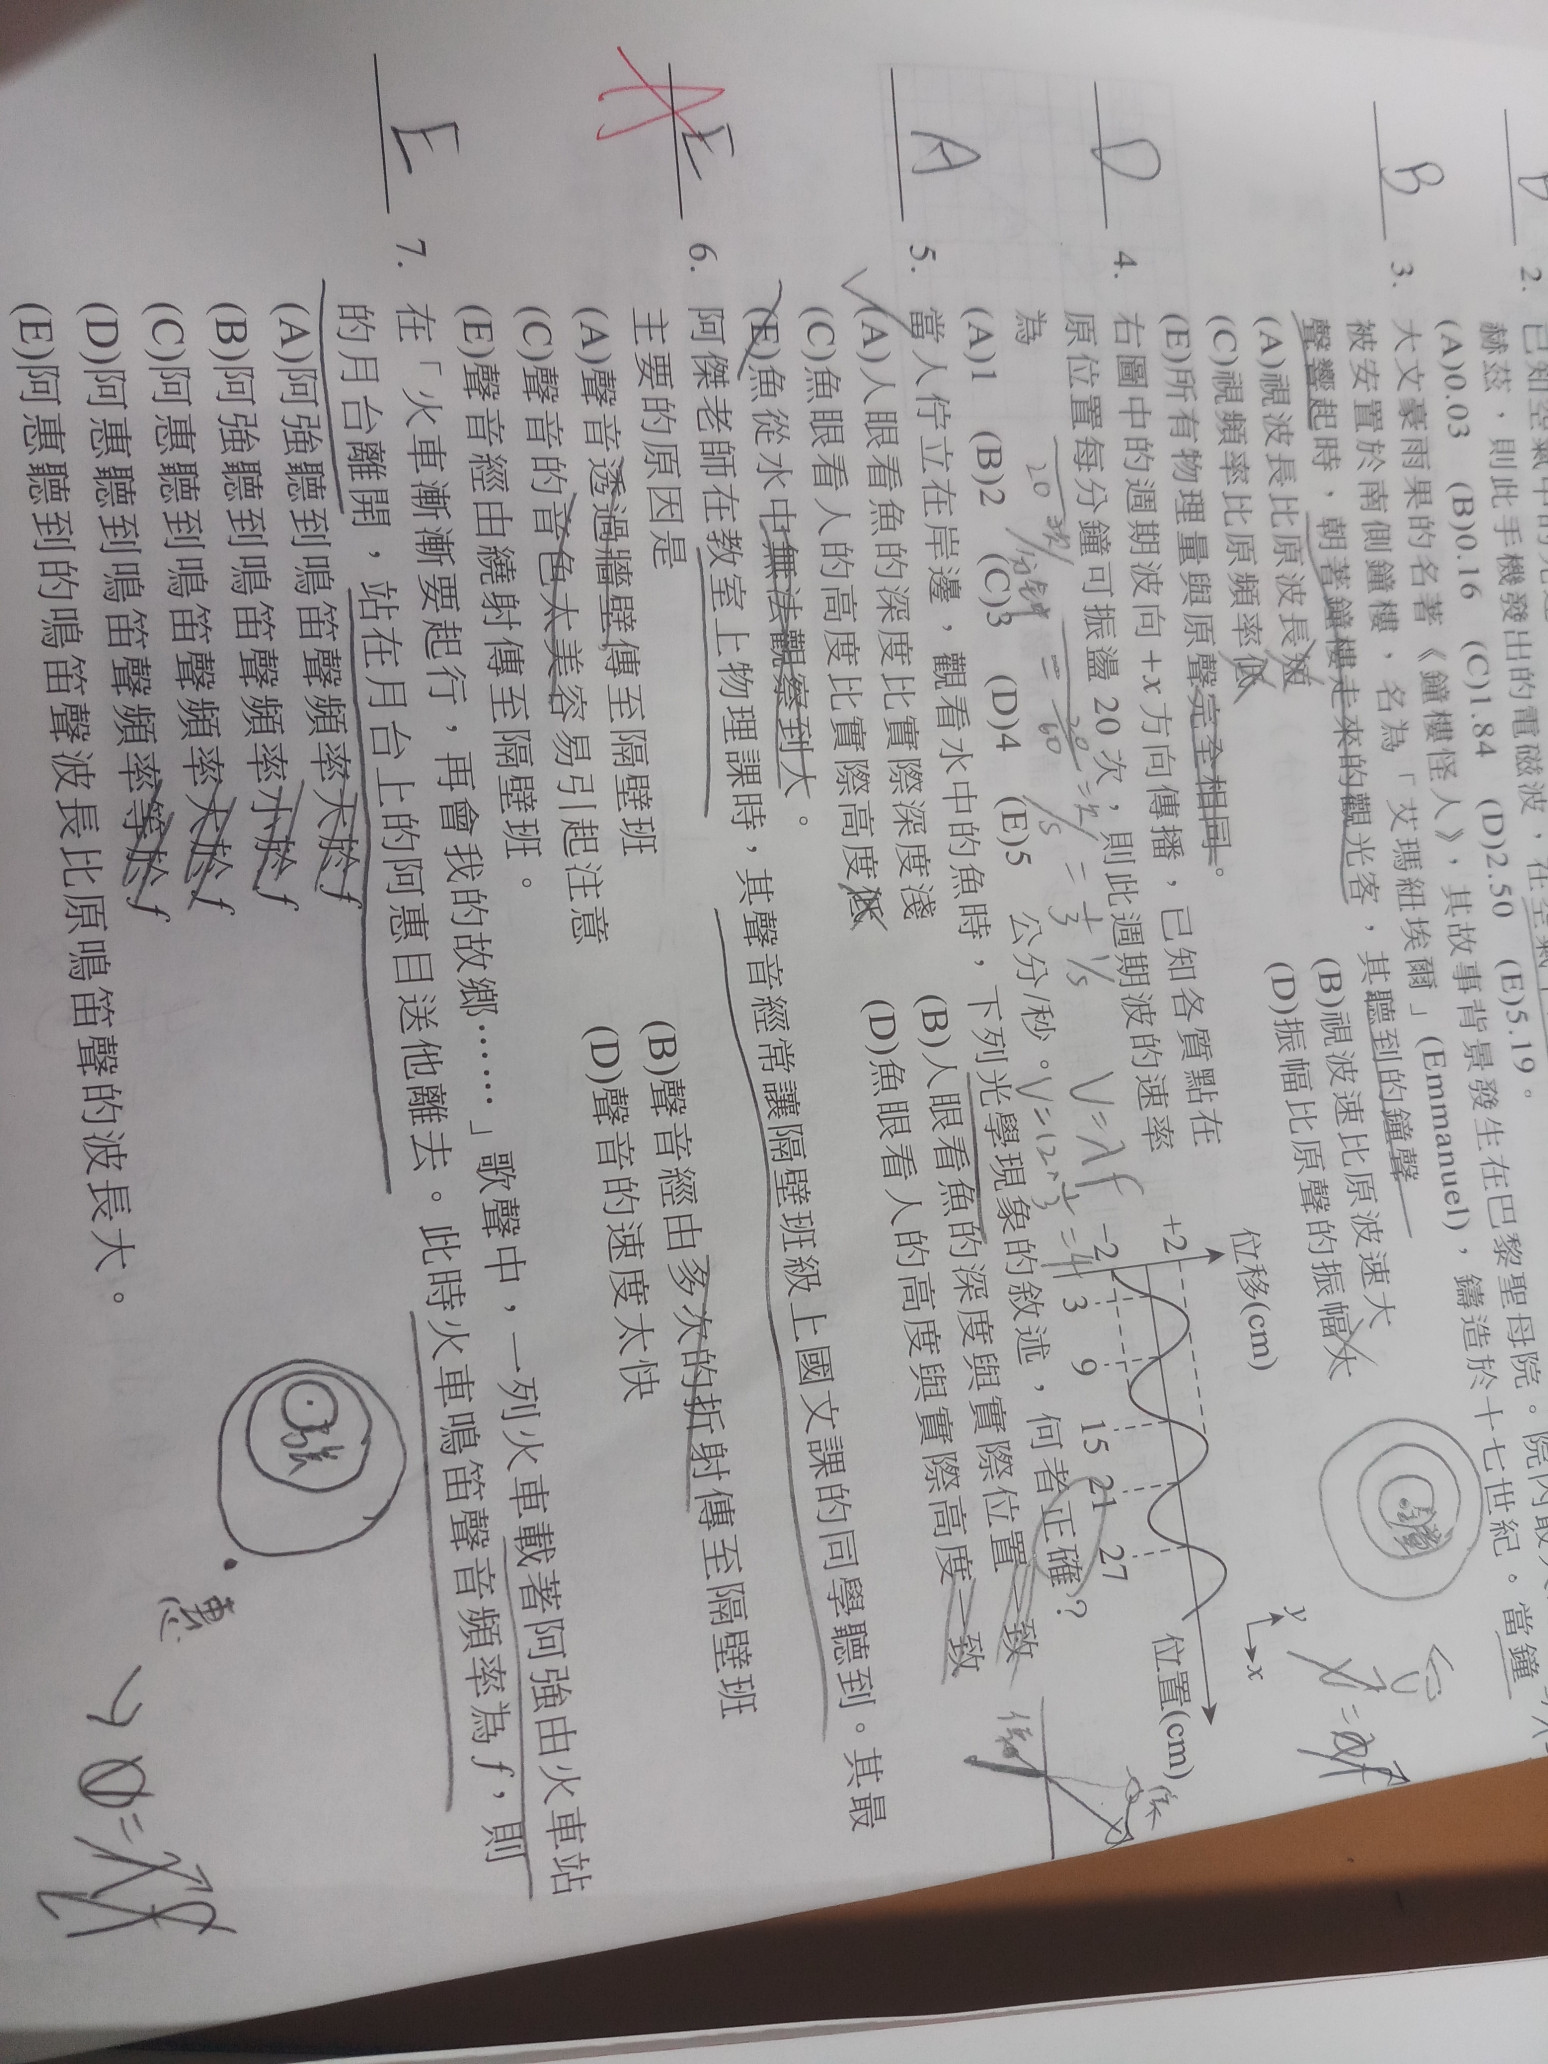 2. 已知空氣中的光速
赫茲，則此手機發出的電磁波，在空氣中
(A)0.03 (B)0.16 (C)1.84 (D)2.50 (E)5.19。
B 3. 大文豪雨果的名著《鐘樓怪人》，其故事背景發生在巴黎聖母院。院內最大
被安置於南側鐘樓，名為「艾瑪紐埃爾」(Emmanuel)，鑄造於十七世紀。當鐘
聲響起時，朝著鐘樓走來的觀光客，其聽到的鐘聲
(A)視波長比原波長短 (B)視波速比原波速大
(C)視頻率比原頻率低 (D)振幅比原聲的振幅大
(E)所有物理量與原聲完全相同。
D 4. 右圖中的週期波向+x方向傳播，已知各質點在
原位置每分鐘可振盪20次，則此週期波的速率
為
(A)1 (B)2 (C)3 (D)4 (E)5 公分/秒。
位移(cm)
+2
-2
3 9 15 21 27
位置(cm)
y
x
20次/分鐘 = 20次/60s = 1/3 1/s
V=λf
V=12×1/3=4
A 5. 當人佇立在岸邊，觀看水中的魚時，下列光學現象的敘述，何者正確？
(A)人眼看魚的深度比實際深度淺 (B)人眼看魚的深度與實際位置一致
(C)魚眼看人的高度比實際高度低 (D)魚眼看人的高度與實際高度一致
(E)魚從水中無法觀察到人。
E A 6. 阿傑老師在教室上物理課時，其聲音經常讓隔壁班級上國文課的同學聽到。其最
主要的原因是
(A)聲音透過牆壁傳至隔壁班 (B)聲音經由多次的折射傳至隔壁班
(C)聲音的音色太美容易引起注意 (D)聲音的速度太快
(E)聲音經由繞射傳至隔壁班。
E 7. 在「火車漸漸要起行，再會我的故鄉……」歌聲中，一列火車載著阿強由火車站
的月台離開，站在月台上的阿惠目送他離去。此時火車鳴笛聲音頻率為f，則
(A)阿強聽到鳴笛聲頻率大於f
(B)阿強聽到鳴笛聲頻率小於f
(C)阿惠聽到鳴笛聲頻率大於f
(D)阿惠聽到鳴笛聲頻率等於f
(E)阿惠聽到的鳴笛聲波長比原鳴笛聲的波長大。
強
惠